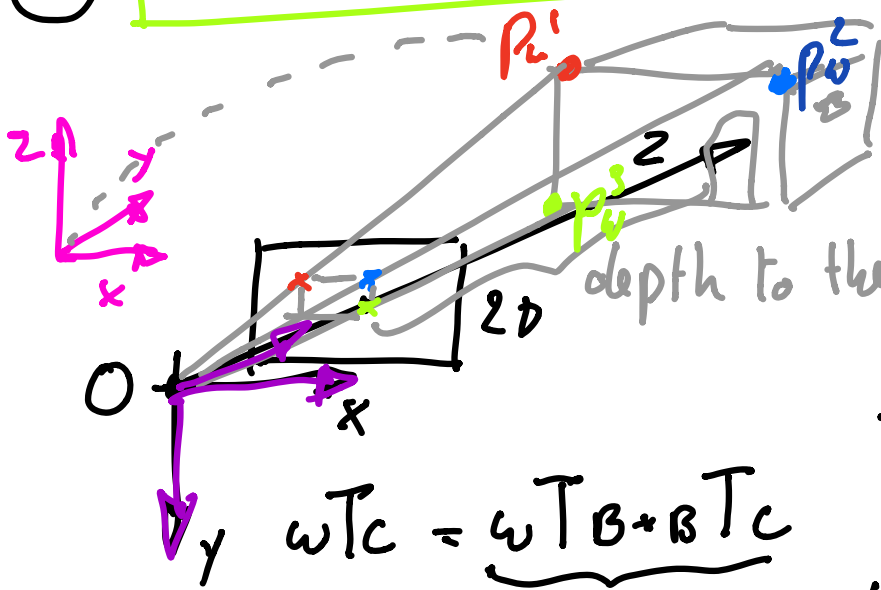 Pw¹
Pw²
B
Z
y
x
Z
Pw³
depth to the
2D
O
x
y
wTc = wTB * BTc